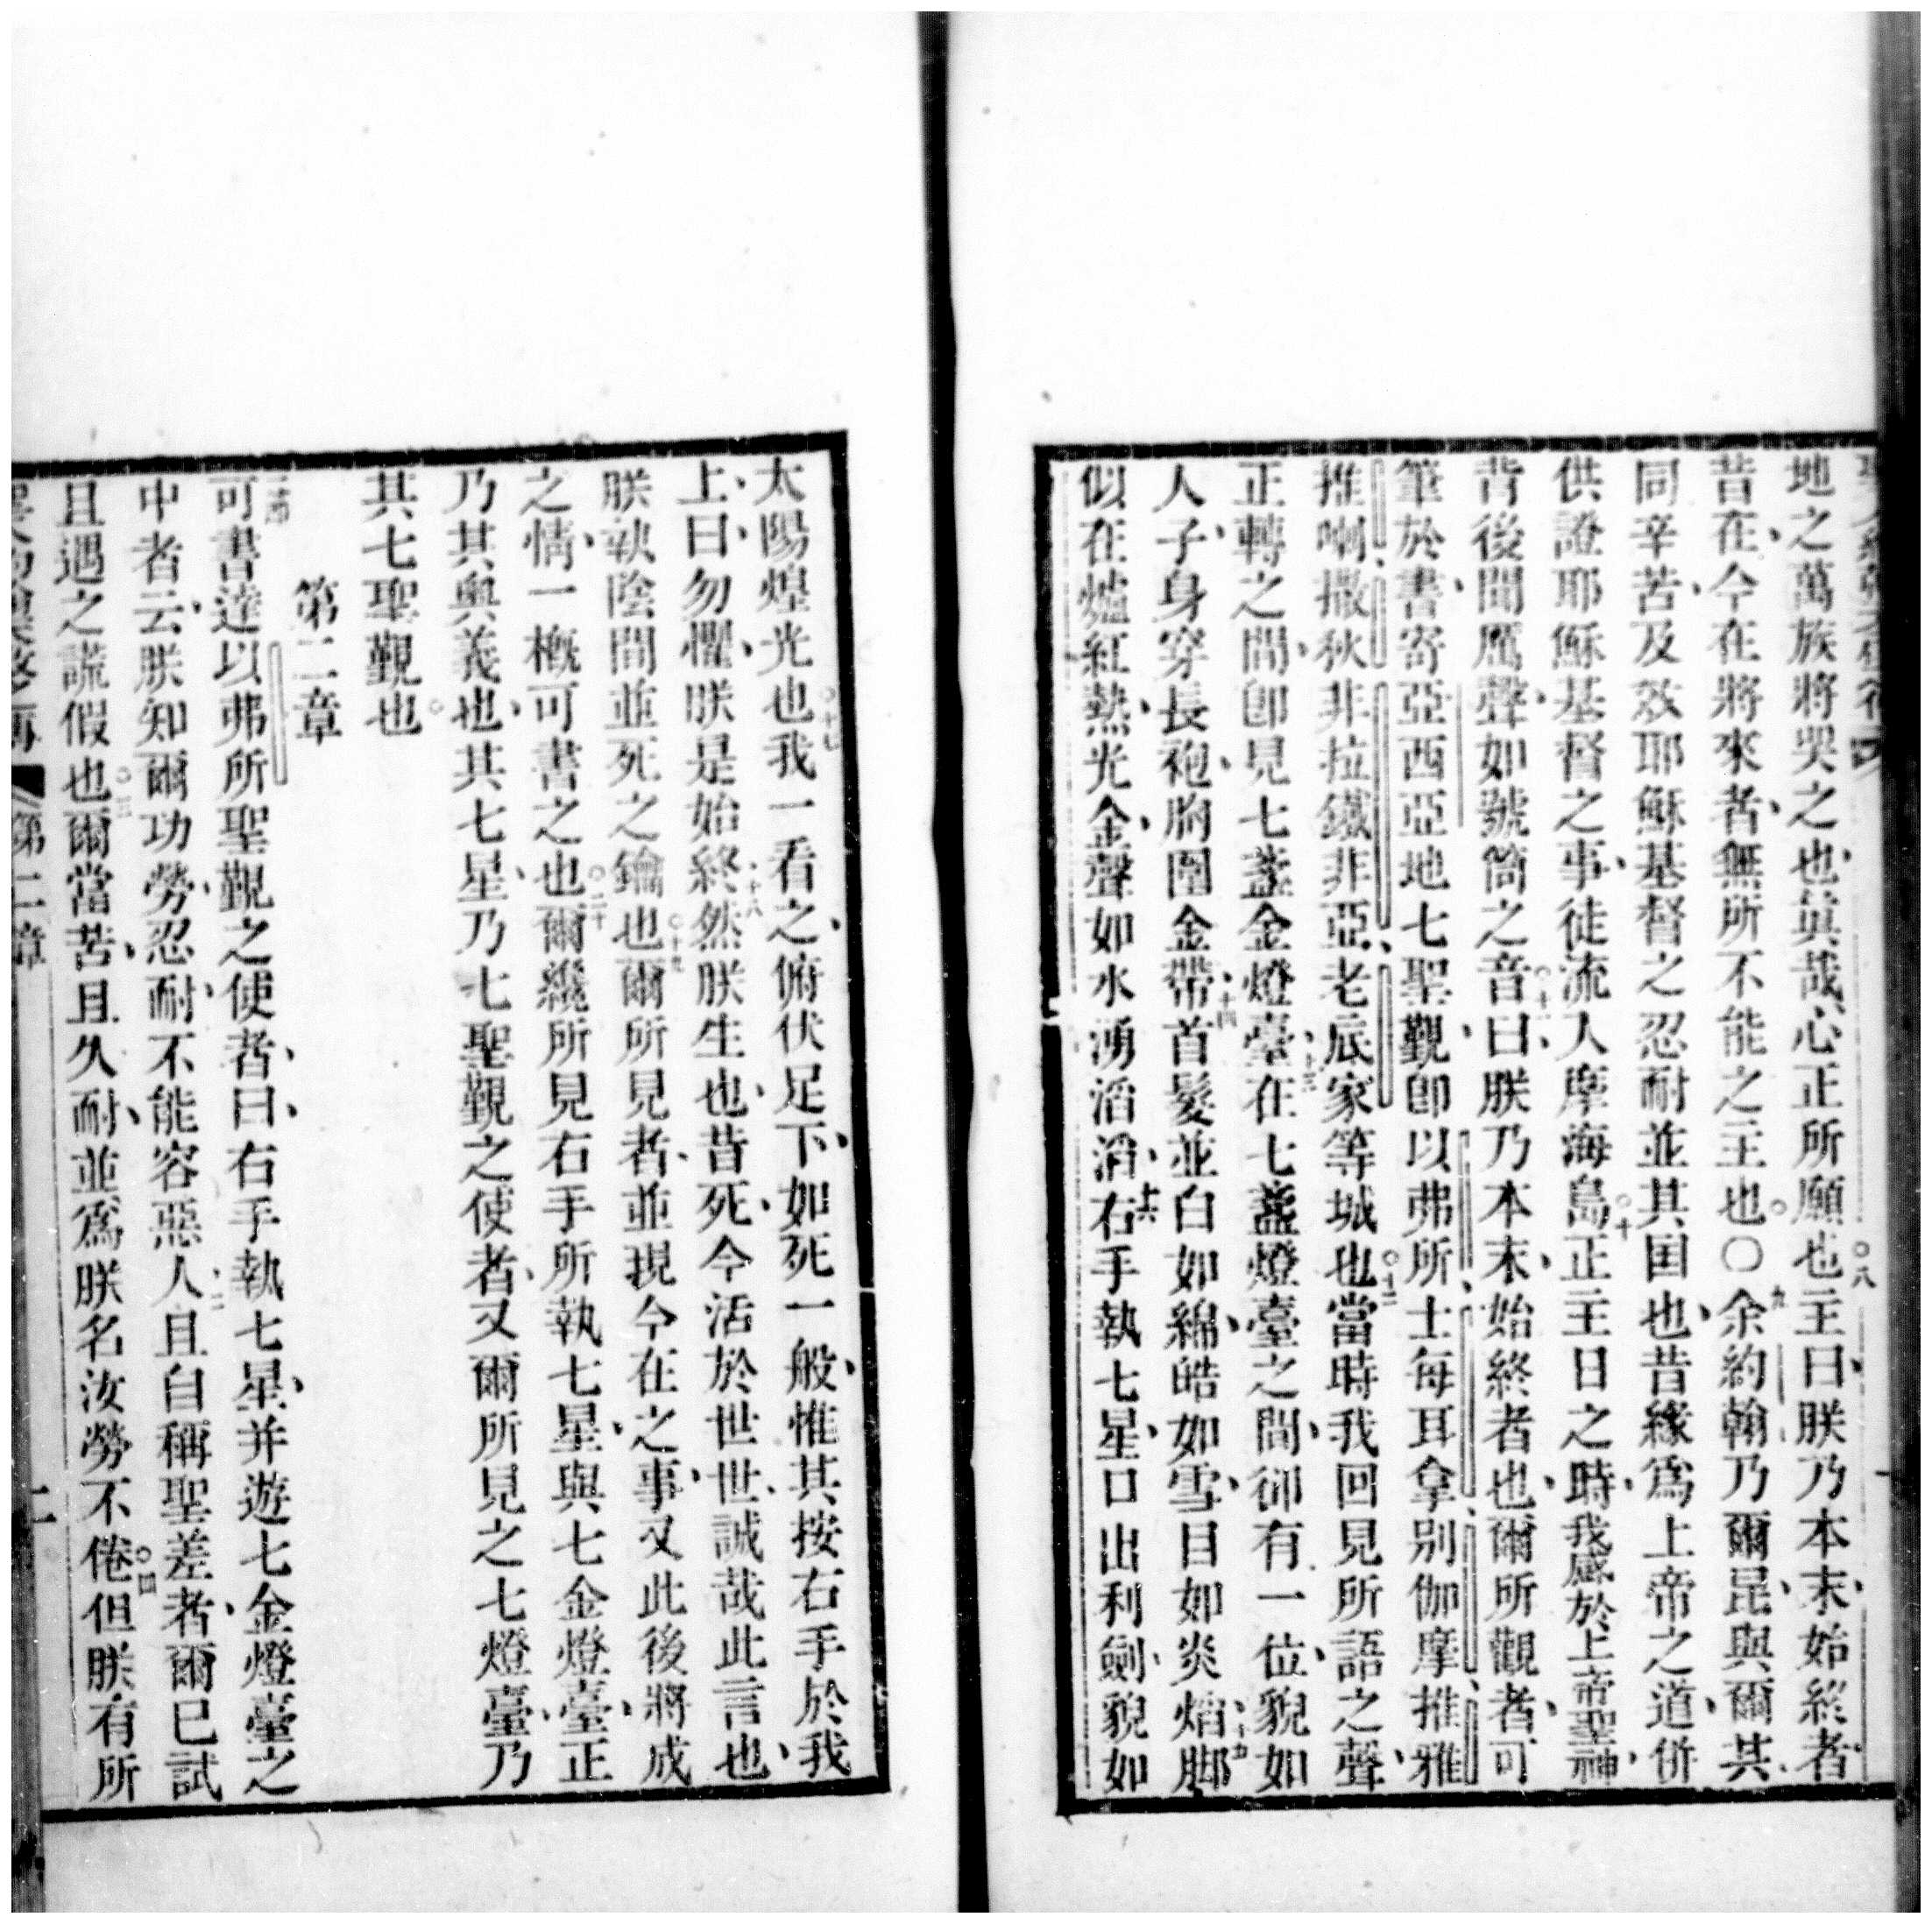 地之萬族將哭之也眞哉心正所願也○八主曰朕乃本末始終者
昔在今在將來者無所不能之主也○○九余約翰乃爾昆與爾其
同辛苦及效耶穌基督之忍耐並其囯也昔緣爲上帝之道併
供證耶穌基督之事徒流人摩海島○十正主日之時我感於上帝聖神
背後聞厲聲如號筒之音○十一曰朕乃本末始終者也爾所觀者可
筆於書寄亞西亞地七聖覲卽以弗所士每耳拿别伽摩推雅
推喇撒狄非拉鐵非亞老底家等城也○十二當時我回見所語之聲
正轉之間卽見七盞金燈臺十三在七盞燈臺之間卻有一位貌如
人子身穿長袍胸圍金帶十四首髮並白如綿皓如雪目如炎焰十五脚
似在爐紅熱光金聲如水湧滔滔十六右手執七星口出利劍貌如
太陽煌光也○十七我一看之俯伏足下如死一般惟其按右手於我
上曰勿懼朕是始終十八然朕生也昔死今活於世世誠哉此言也
朕執陰間並死之鑰也○十九爾所見者並現今在之事又此後將成
之情一槪可書之也○二十爾纔所見右手所執七星與七金燈臺正
乃其奧義也其七星乃七聖覲之使者又爾所見之七燈臺乃
其七聖覲也○
第二章
可書達以弗所聖覲之使者曰右手執七星并遊七金燈臺之
中者云朕知爾功勞忍耐不能容惡人二且自稱聖差者爾已試
且遇之謊假也○三爾當苦且久耐並爲朕名汝勞不倦○四但朕有所
第二章
二